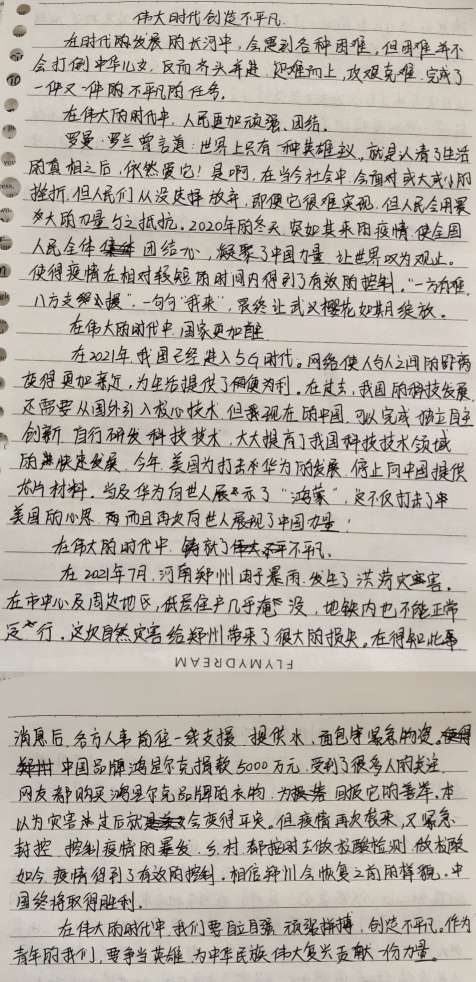 伟大时代创造不平凡.
在时代的发展的长河中,会遇到各种困难,但困难并不
会打倒中华儿女,反而齐头并进,迎难而上,攻艰克难,完成了
一件又一件的不平凡的任务。
在伟大的时代中,人民更加顽强、团结。
罗曼·罗兰曾言道:世界上只有一种英雄主义,就是认清了生活
的真相之后,依然爱它!是啊,在当今社会中,会面对或大或小的
挫折,但人民们从没选择放弃,即便它很难实现,但人民会用最
大的力量与之抵抗。2020年的冬天,突如其来的疫情,使全国
人民全体团结一心,凝聚了中国力量,让世界叹为观止。
使得疫情在相对较短的时间内得到了有效的控制。"一方有难,
八方支援",一句句"我来",最终让武汉樱花如期绽放。
在伟大的时代中,国家更加
在2021年,我国已经进入5G时代。网络使人与人之间的距离
变得更加亲近,为生活提供了便利。在过去,我国的科技发展
还需要从国外引入核心技术,但现在的中国,可以完成独立自主
创新,自行研发科技技术,大大提高了我国科技技术领域
的快速发展。今年,美国为打击华为的发展,停止向中国提供
芯片材料。当及华为向世人展示了"鸿蒙",这不仅打击了
美国的心思,而且再次向世人展现了中国力量!
在伟大的时代中,铸就了不平凡.
在2021年7月,河南郑州由于暴雨,发生了洪涝灾害。
在市中心及周边地区,低层住户几乎淹没,地铁内也不能正常
运行。这次自然灾害给郑州带来了很大的损失。在得知此
FLYMYDREAM
消息后,各方人士前往一线支援,提供水,面包等紧急物资。
中国品牌鸿星尔克捐款5000万元,受到了很多人的关注.
网友都购买鸿星尔克品牌的衣物,为回报它的善举,本
以为灾害发生后就会变得平安。但疫情再次袭来,又紧急
封控,控制疫情的暴发,乡村都挨团去做核酸检测,做核酸
如今疫情得到了有效的控制。相信郑州会恢复之前的样貌,中
国终将取得胜利.
在伟大的时代中,我们要自立自强,顽强拼搏,创造不平凡。作为
青年的我们,要争当英雄,为中华民族伟大复兴贡献一份力量。